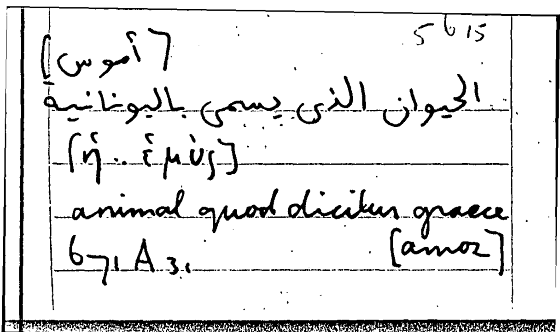 5615
[أموس]
الحيوان الذى يسمى باليونانية
[ἡ .. ἐμύς]
animal quod dicitur graece
671 A 31 [amoz]